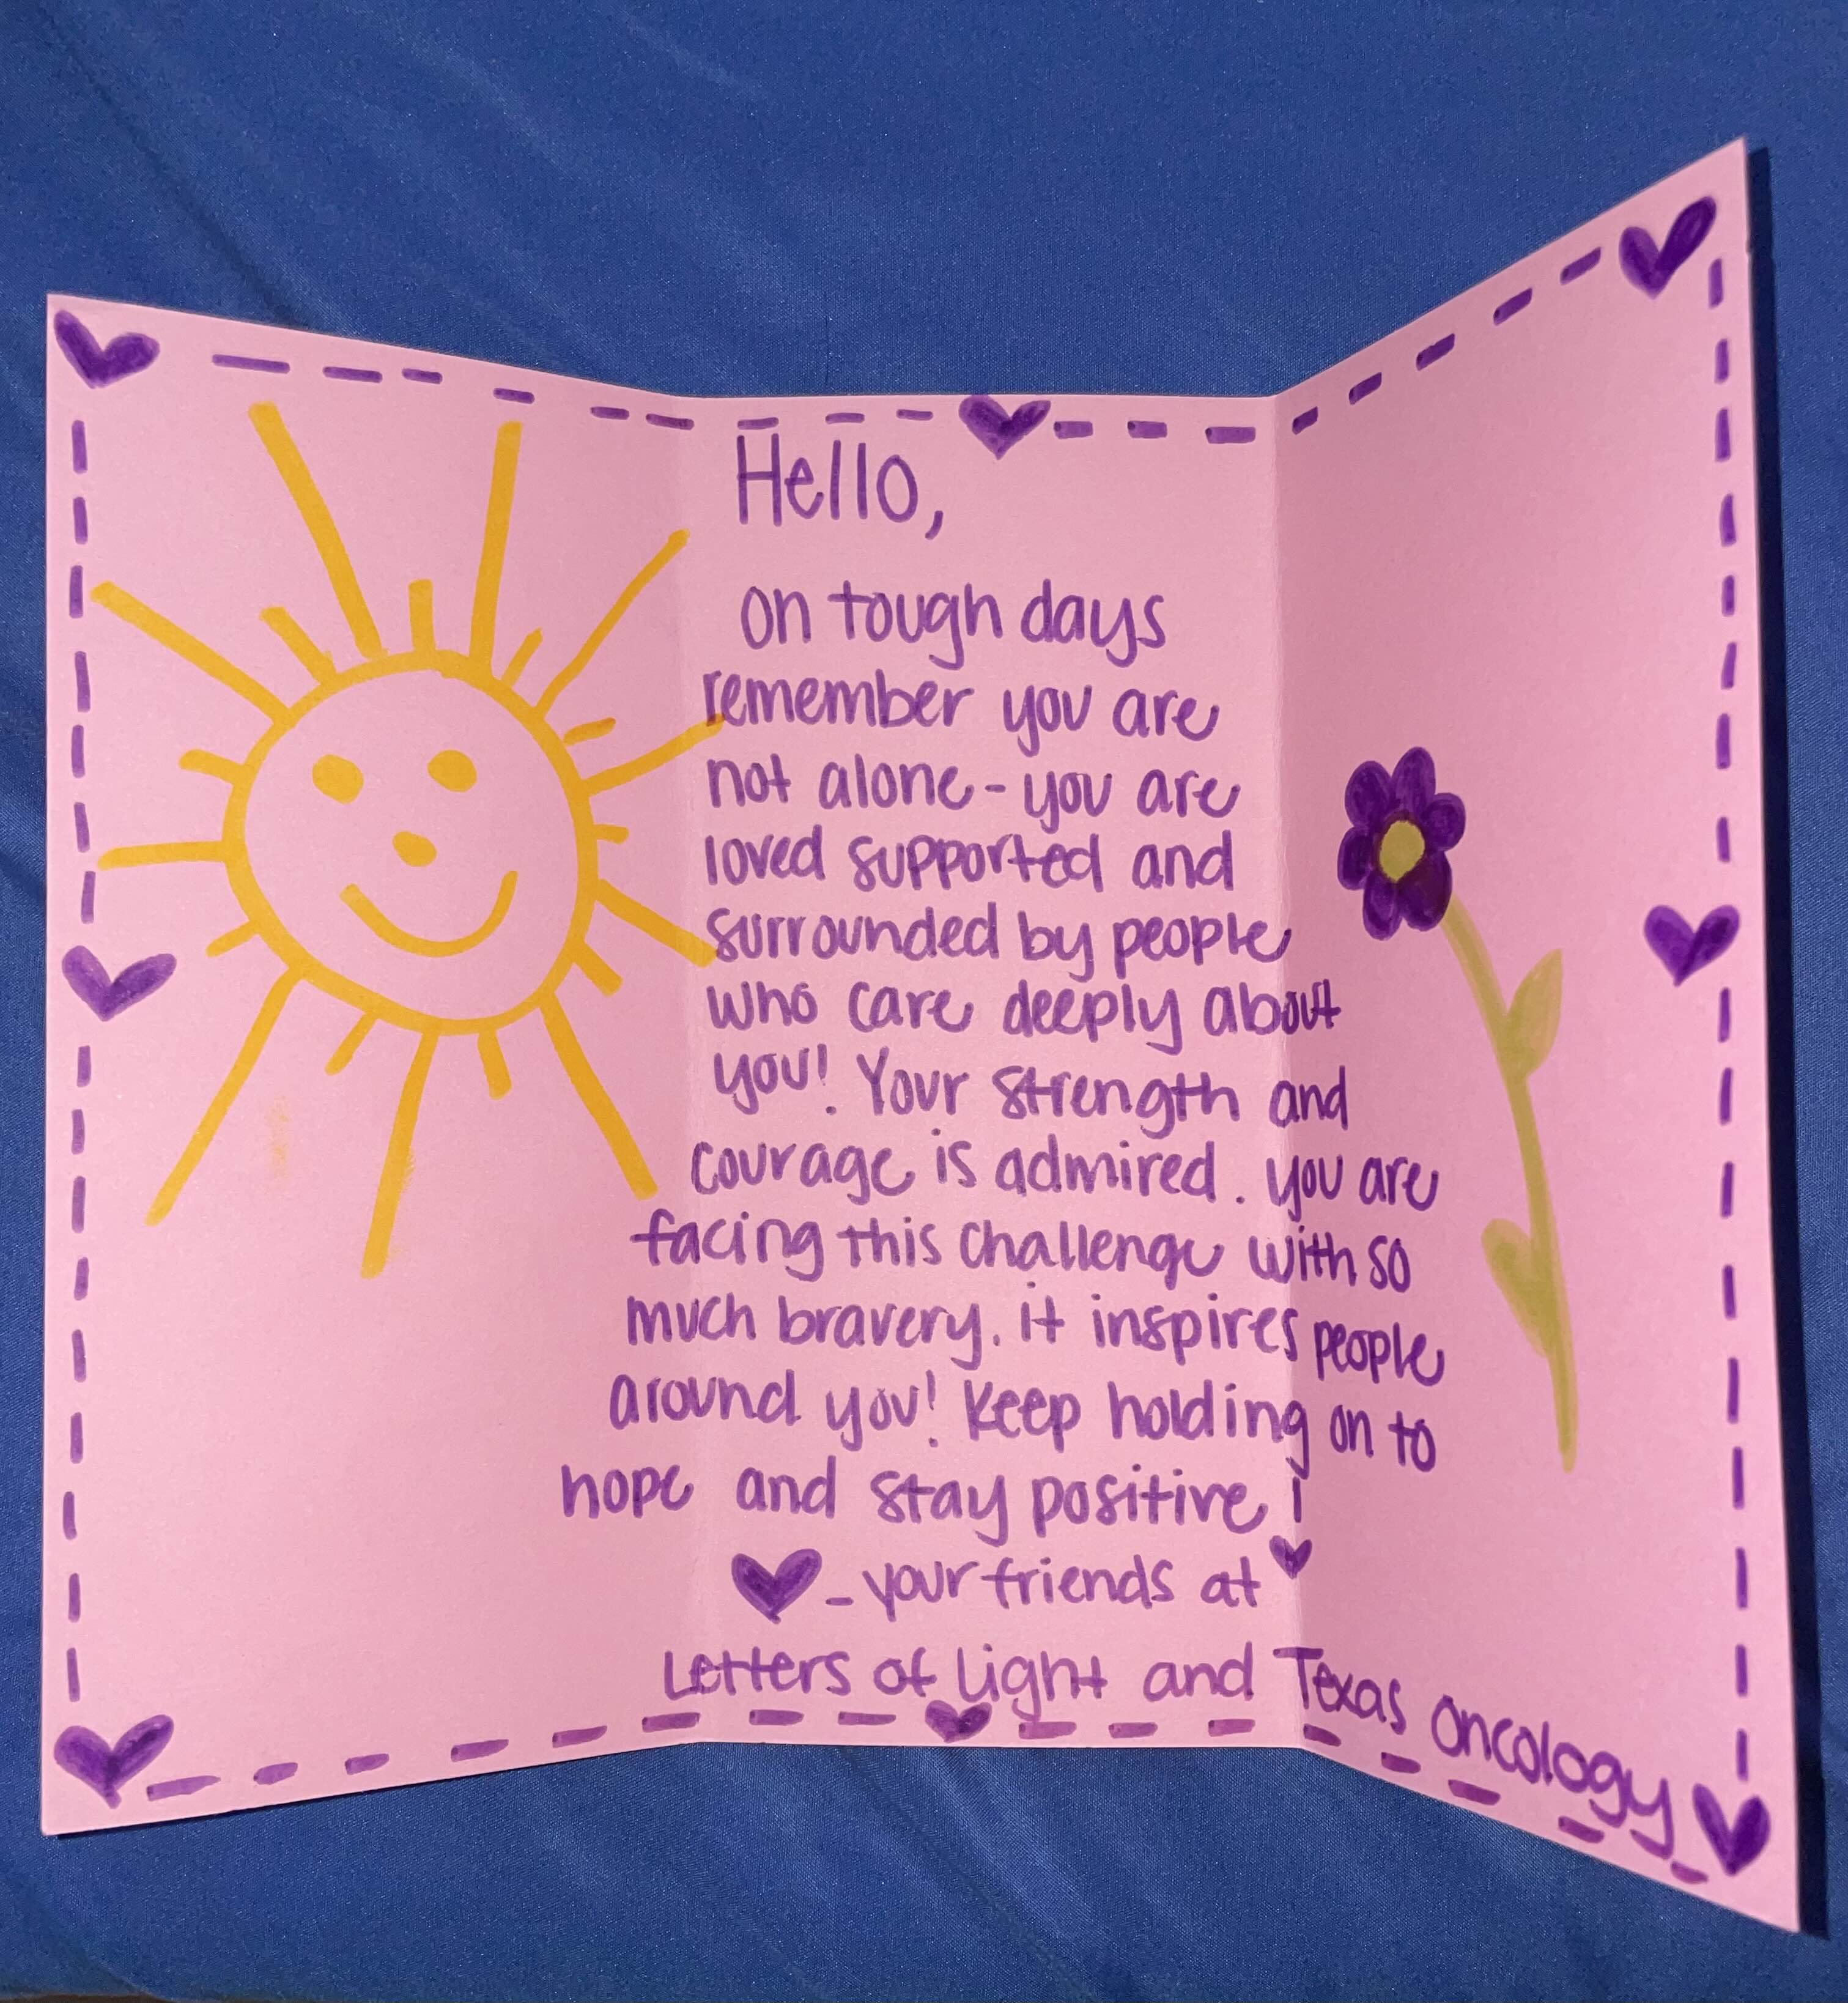 Hello,
on tough days
remember you are
not alone - you are
loved supported and
surrounded by people
who care deeply about
you! Your strength and
courage is admired. you are
facing this challenge with so
much bravery. it inspires people
around you! Keep holding on to
hope and stay positive!
- your friends at
Letters of Light and Texas Oncology